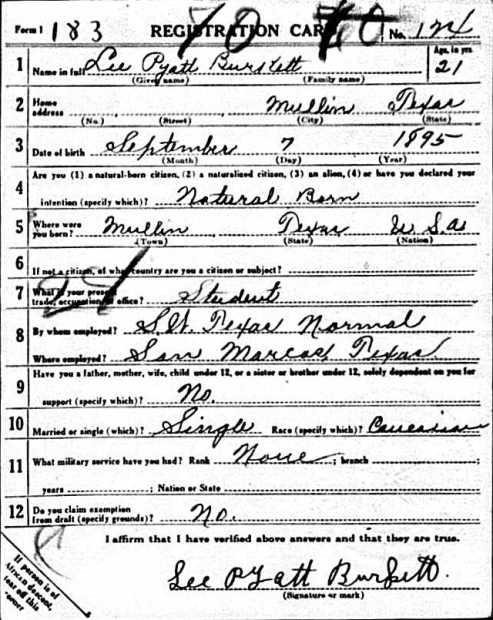 Form 1 183 REGISTRATION CARD No. 124
1 Name in full Lee Pyatt Burkett Age, in yrs. 21
(Given name) (Family name)
2 Home address Mullin Texas
(No.) (Street) (City) (State)
3 Date of birth September 7 1895
(Month) (Day) (Year)
Are you (1) a natural-born citizen, (2) a naturalized citizen, (3) an alien, (4) or have you declared your
4 intention (specify which)? Natural Born
5 Where were you born? Mullin Texas U S A
(Town) (State) (Nation)
6 If not a citizen, of what country are you a citizen or subject?
7 What is your present trade, occupation, or office? Student
8 By whom employed? S.W. Texas Normal
Where employed? San Marcos, Texas
9 Have you a father, mother, wife, child under 12, or a sister or brother under 12, solely dependent on you for
support (specify which)? No.
10 Married or single (which)? Single Race (specify which)? Caucasian
11 What military service have you had? Rank None ; branch ;
years ; Nation or State
12 Do you claim exemption from draft (specify grounds)? No.
I affirm that I have verified above answers and that they are true.
Lee Pyatt Burkett.
(Signature or mark)
If person is of
African descent,
tear off this
corner